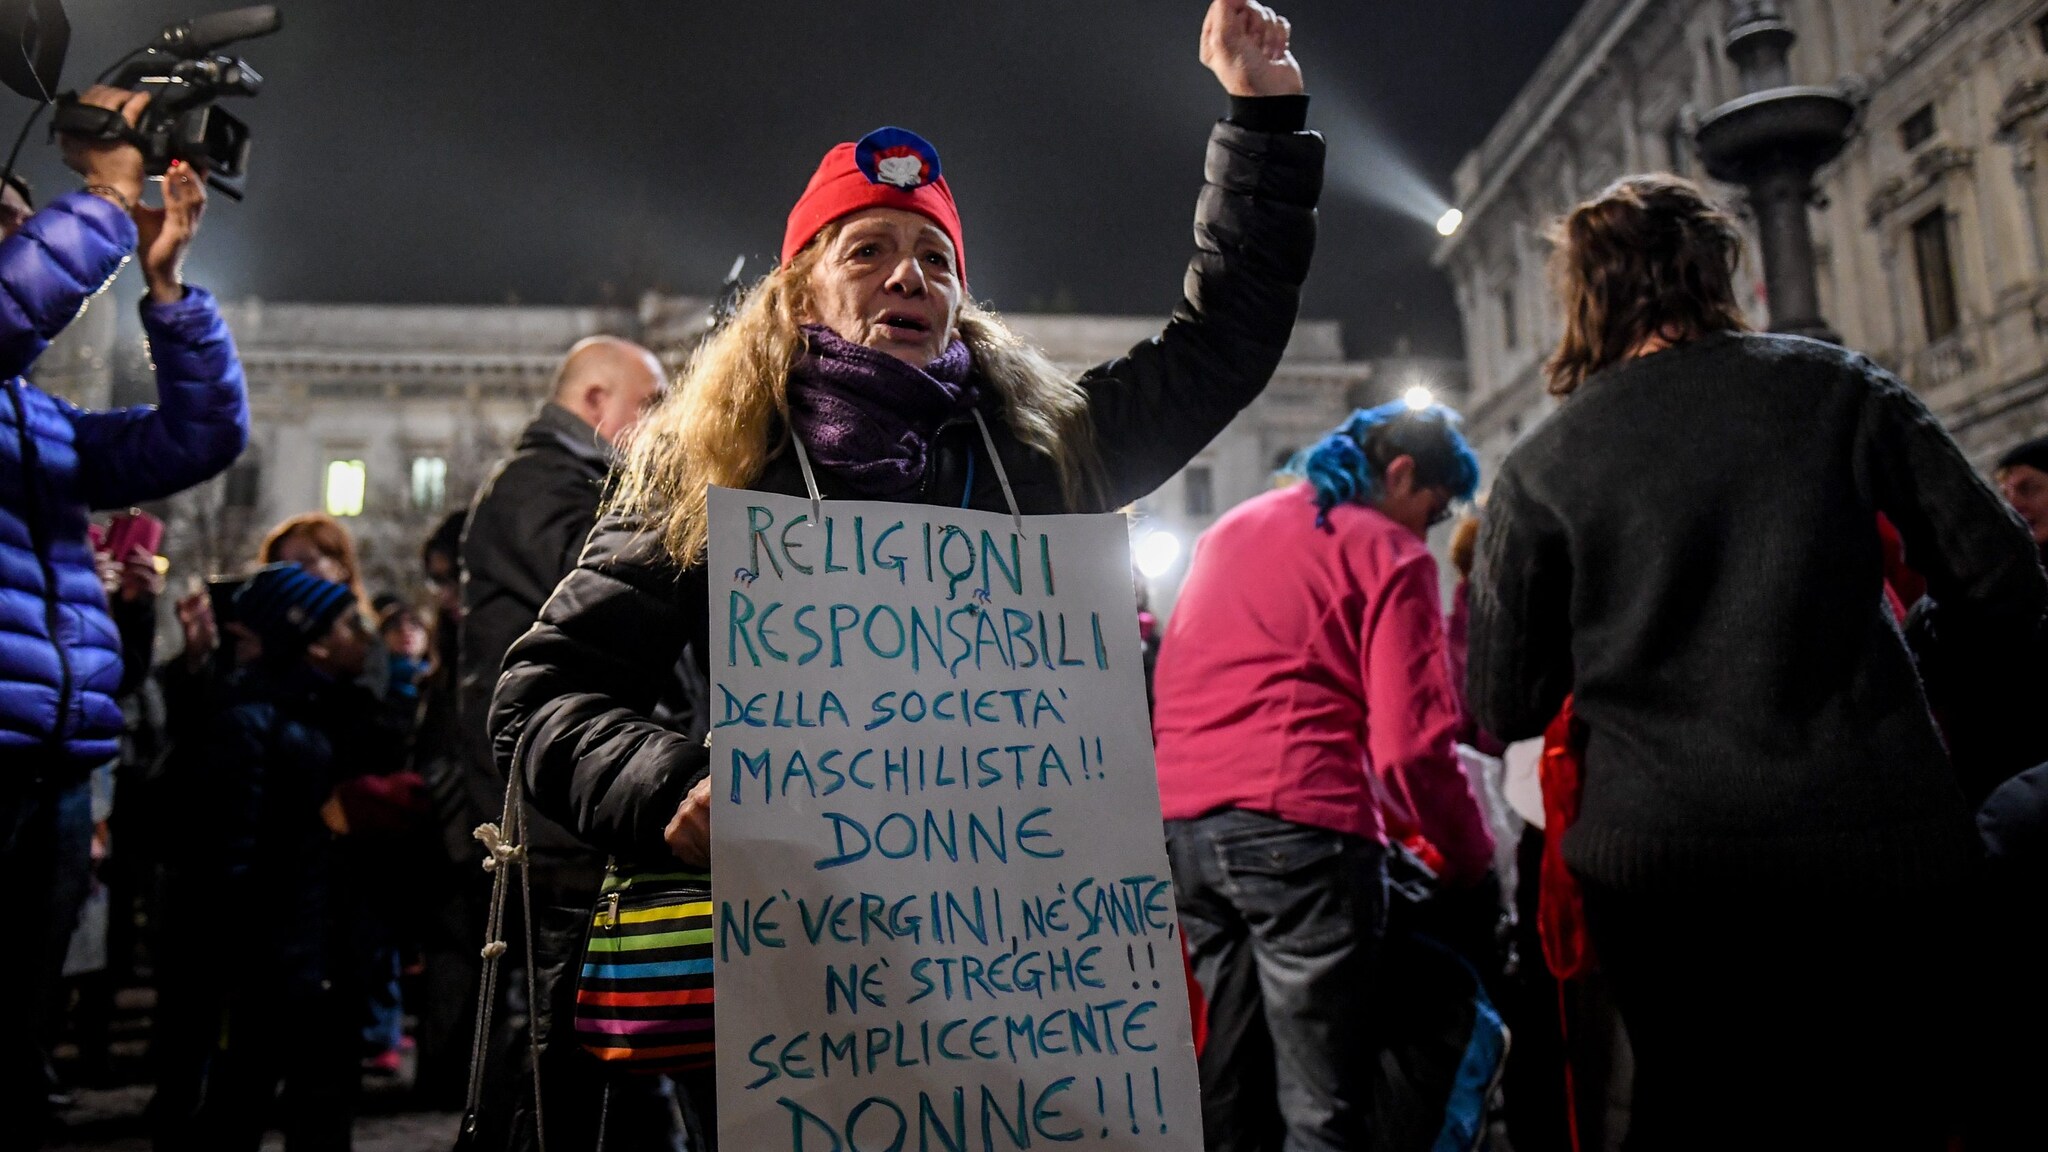 RELIGIONI
RESPONSABILI
DELLA SOCIETA'
MASCHILISTA!!
DONNE
NE' VERGINI, NE' SANTE,
NE' STREGHE!!
SEMPLICEMENTE
DONNE!!!